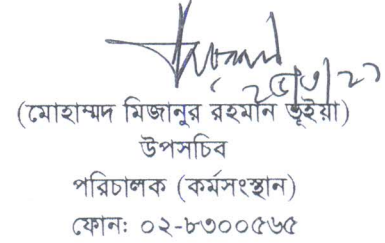 ২৫/৩/২১
(মোহাম্মদ মিজানুর রহমান ভূইয়া)
উপসচিব
পরিচালক (কর্মসংস্থান)
ফোন: ০২-৮৩০০৫৬৫